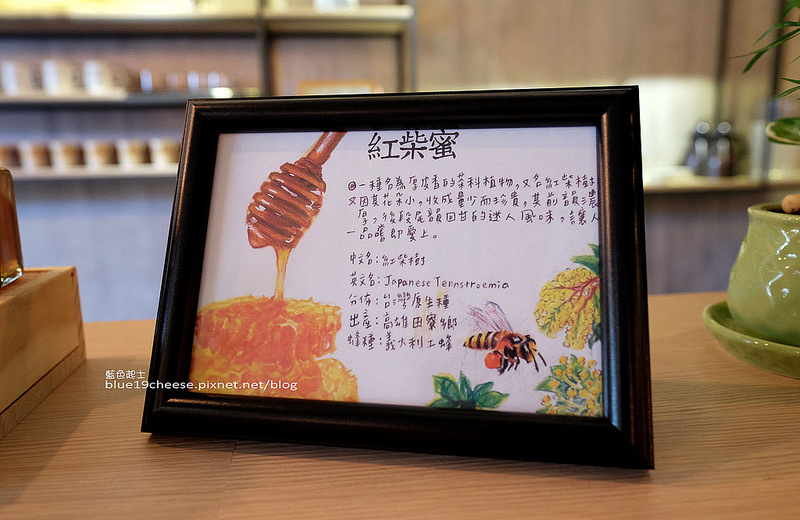 紅柴蜜
◎一種名為厚皮香的茶科植物,又名紅柴樹
又因其花朵小,收成量少而珍貴,其前韻濃
厚,後段尾韻回甘的迷人風味,讓人
一品嚐即愛上。
中文名:紅柴樹
英文名:Japanese Ternstroemia
分佈:台灣原生種
出產:高雄田寮鄉
蜂種:義大利工蜂
藍色起士
blue19cheese.pixnet.net/blog